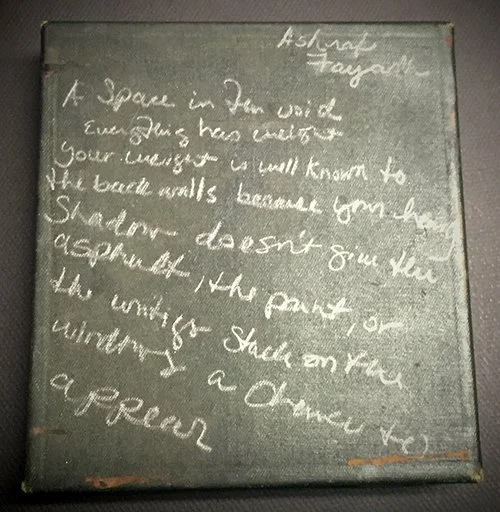 Ashraf
Fayadh
A Space in the void
Everything has weight
your weight is well known to
the back walls because your heavy
Shadow doesn't give the
asphalt, the paint, or
the writings stuck on the
windows a chance to
appear